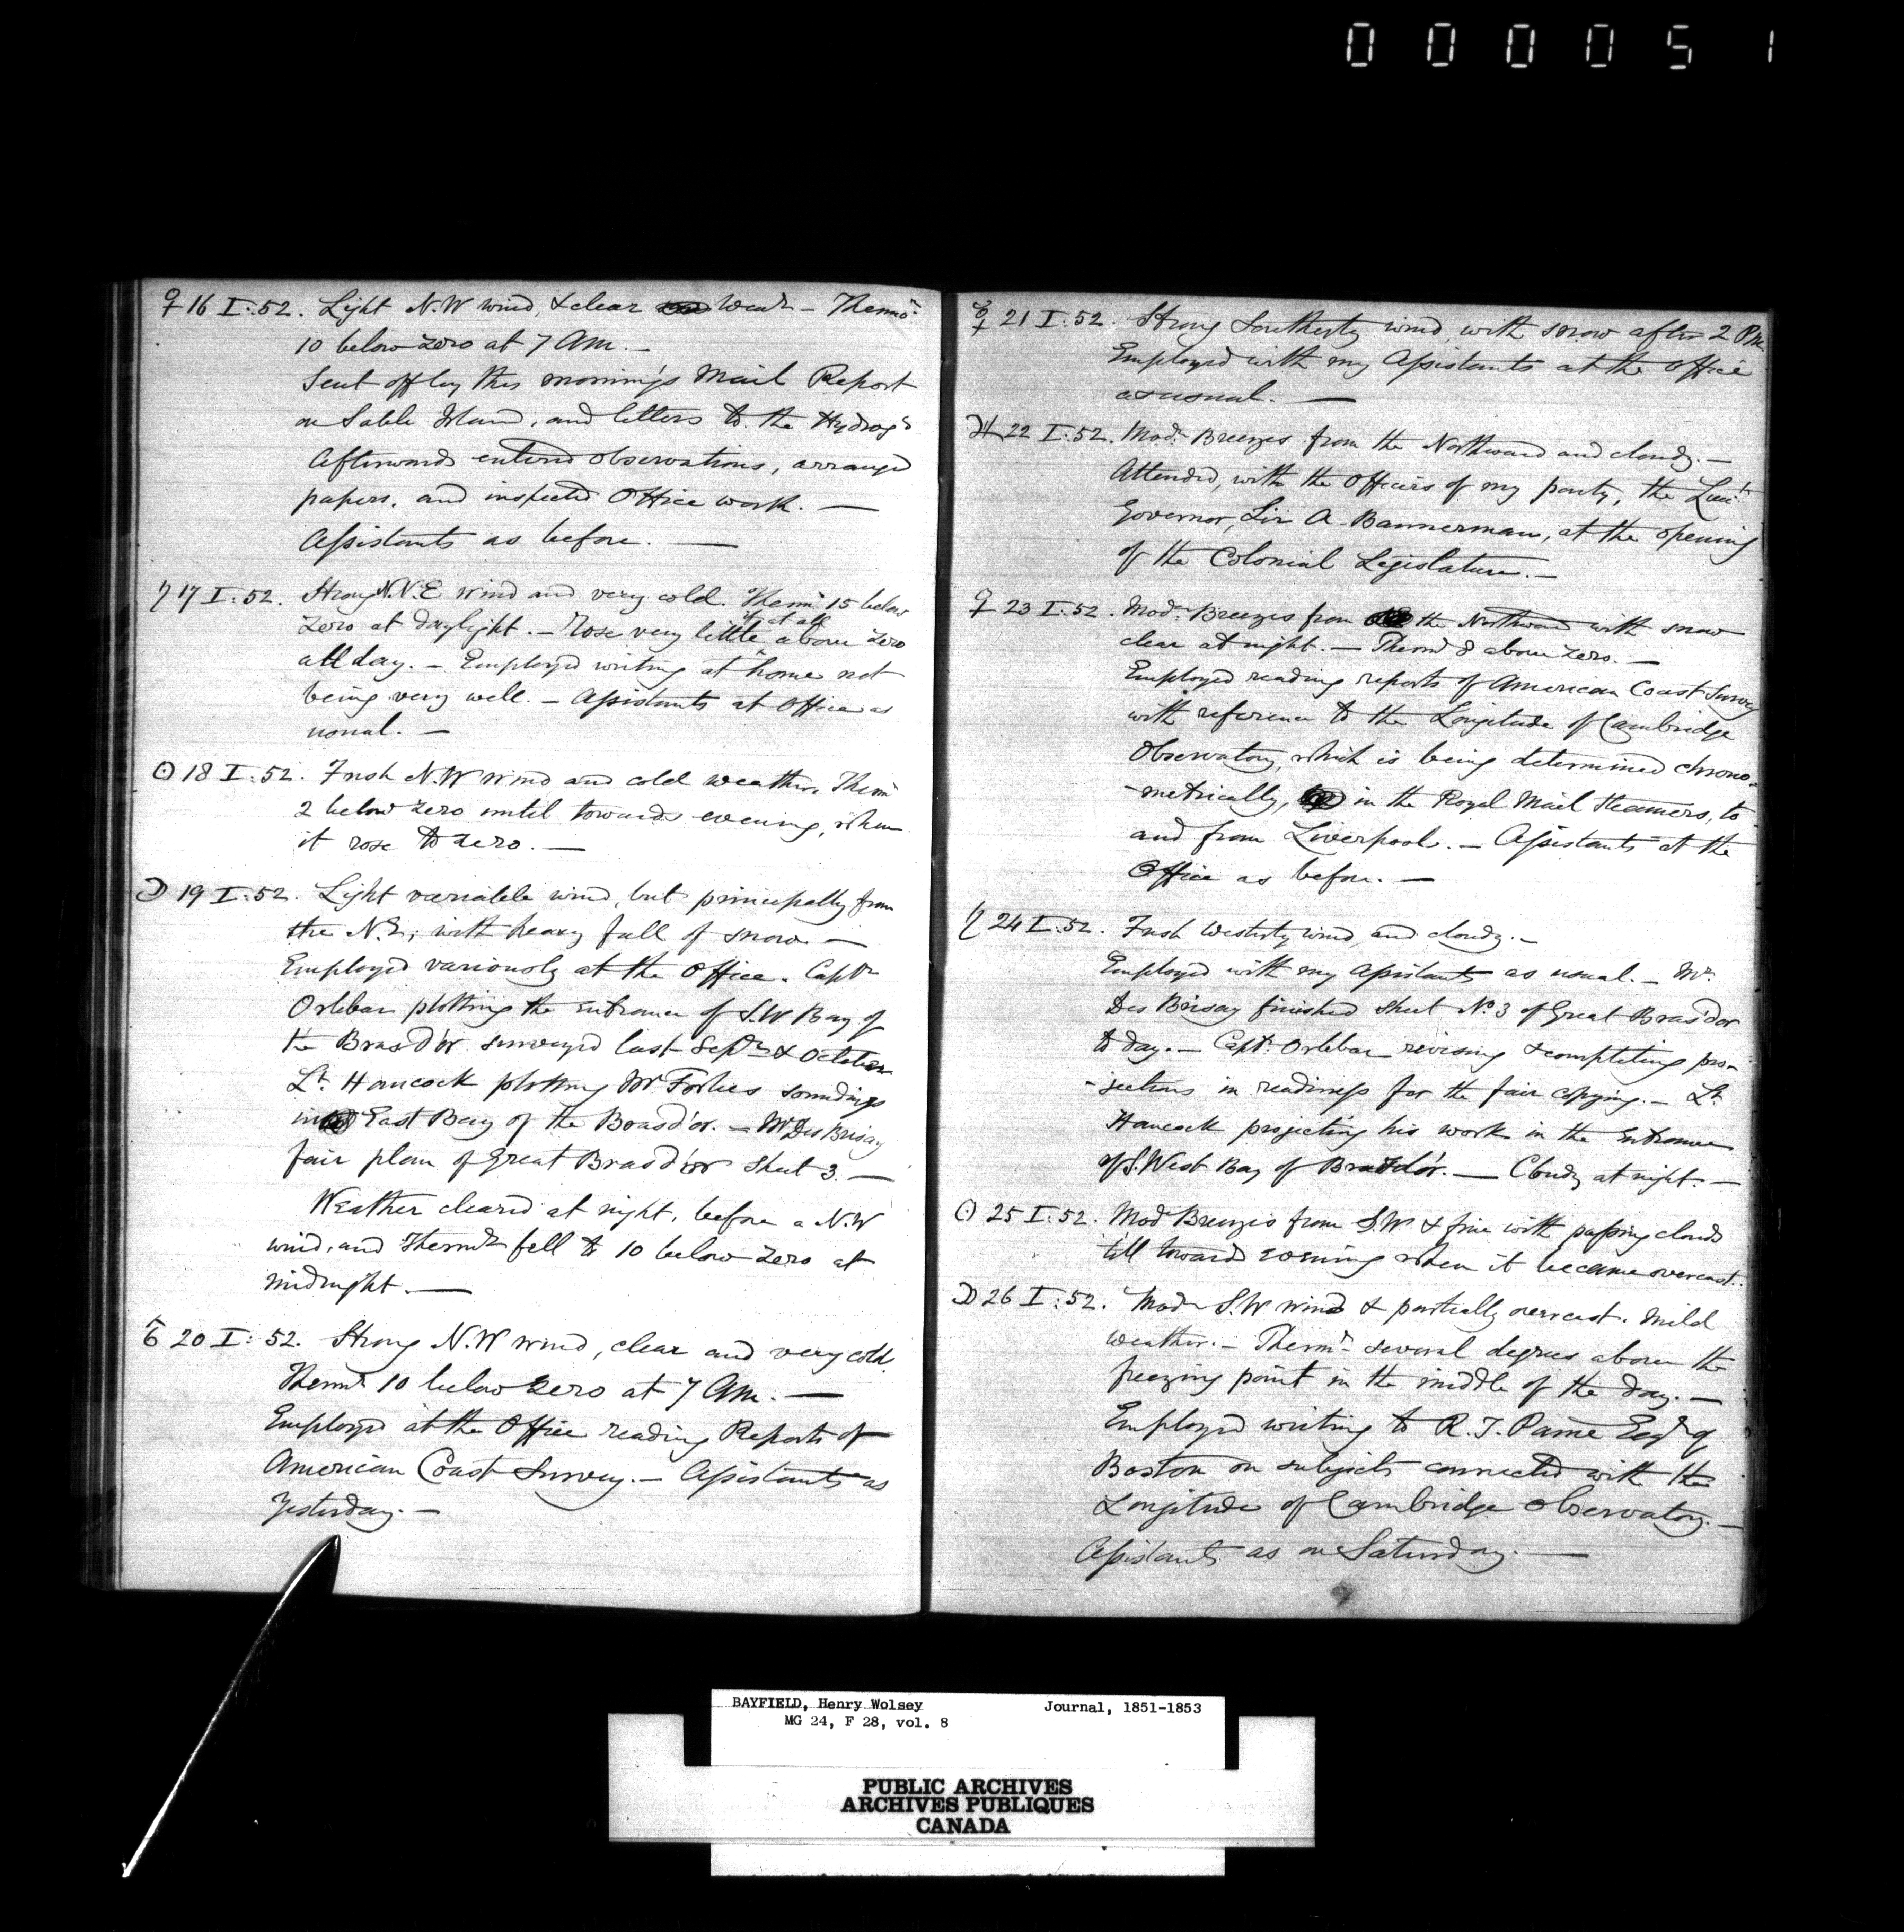 000051
♀ 16 I:.52. Light N.W wind, & clear Wear - Thermo.r
10 below Zero at 7 AM. —
Sent off by this morning's Mail Report
on Sable Island, and letters to the Hydrogr
Afterwards entered observations, arranged
papers, and inspected Office work. —
Assistants as before. —
♄ 17 I:.52. Strong N.N.E wind and very cold. Therm.r 15 below
if at all
Zero at daylight. — Rose very little ^ above Zero
all day. — Employed writing at home not
being very well. — Assistants at Office as
usual. —
☉ 18 I:.52. Fresh N.W wind and cold weather. Therm.r
2 below zero until towards evening, when
it rose to zero. —
☽ 19 I:.52. Light variable wind, but principally from
the N.E; with heavy fall of snow —
Employed variously at the Office. Captn
Orlebar plotting the entrance of S.W Bay of
the Bras d'or surveyed last Sepr & October
Lt. Hancock plotting Mr Forbes soundings
in East Bay of the Bras d'or. — Mr Des Brisay
fair plan of Great Bras d'or Sheet 3. —
Weather cleared at night, before a N.W
wind, and Thermr fell to 10 below Zero at
midnight. —
♂ 20 I:.52. Strong N.W wind, clear and very cold.
Thermr 10 below Zero at 7 AM. —
Employed at the Office reading Reports of
American Coast Survey. — Assistants as
Yesterday. —
☿ 21 I:.52. Strong Southerly wind, with snow after 2 PM.
Employed with my Assistants at the Office
as usual. —
♃ 22 I:.52. Modr. Breezes from the Northward and cloudy. —
Attended, with the Officers of my party, the Lieut.
Governor, Sir A. Bannerman, at the opening
of the Colonial Legislature. —
♀ 23 I:.52. Modr. Breezes from the Northward with snow
clear at night. — Thermr 8 above Zero. —
Employed reading reports of American Coast Survey
with reference to the Longitude of Cambridge
Observatory, which is being determined chrono-
-metrically, in the Royal Mail Steamers, to
and from Liverpool. — Assistants at the
Office as before. —
♄ 24 I:.52. Fresh Westerly wind, and cloudy. —
Employed with my Assistants as usual. — Mr.
Des Brisay finished Sheet No. 3 of Great Bras d'or
to day. — Capt. Orlebar revising & completing pro-
-jections in readiness for the fair copying. — Lt.
Hancock projecting his work in the Entrance
of S. West Bay of Bras d'or. — Cloudy at night. —
☉ 25 I:.52. Modr Breezes from S.W & fine with passing clouds
till toward evening when it became overcast.
☽ 26 I:.52. Modr S.W wind & partially overcast. Mild
weather. — Thermr. several degrees above the
freezing point in the middle of the day. —
Employed writing to R. T. Paine Esqr of
Boston on subjects connected with the
Longitude of Cambridge Observatory. —
Assistants as on Saturday. —
BAYFIELD, Henry Wolsey Journal, 1851-1853
MG 24, F 28, vol. 8
PUBLIC ARCHIVES
ARCHIVES PUBLIQUES
CANADA